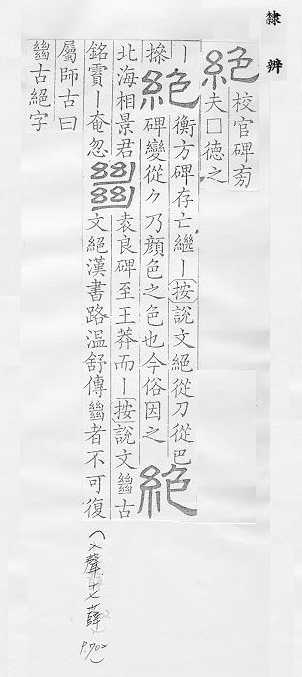 隸辨
絕
校官碑
夫□德之
丨
操
絕
衡方碑存亡繼丨按說文絕從刀從巴
碑變從⺈乃顏色之色也今俗因之
絕
北海相景君
銘霣丨奄忽
𢇍
袁良碑至王莽而丨按說文𢇍古
文絕漢書路溫舒傳𢇍者不可復
屬師古曰
𢇍古絕字
(入聲十七薛 P.702)